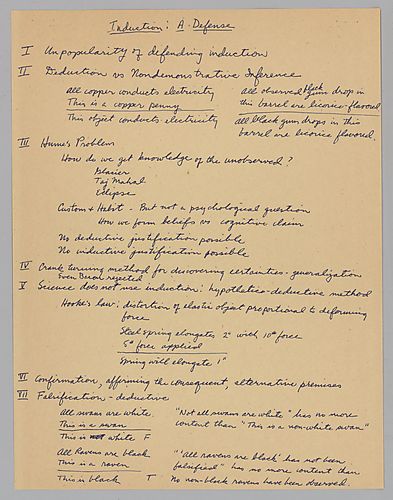 Induction: A Defense
I Unpopularity of defending induction
II Deduction vs Nondemonstrative Inference
All copper conducts electricity
This is a copper penny
This object conducts electricity
All observed black gum drops in
this barrel are licorice-flavored
All black gum drops in this
barrel are licorice flavored.
III Hume's Problem
How do we get knowledge of the unobserved?
Glacier
Taj Mahal
Eclipse
Custom & Habit - But not a psychological question
How we form beliefs vs cognitive claim
No deductive justification possible
No inductive justification possible
IV Crank turning method for discovering certainties - generalization
Even Bacon rejected
V Science does not use induction: hypothetico-deductive method
Hooke's law: distortion of elastic object proportional to deforming
force
Steel spring elongates 2" with 10# force
5# force applied
Spring will elongate 1"
VI Confirmation, affirming the consequent, alternative premises
VII Falsification - deductive
All swans are white
This is a swan
This is not white F
"Not all swans are white" has no more
content than "This is a non-white swan"
All Ravens are black
This is a raven
This is black T
"'All ravens are black' has not been
falsified" has no more content than
No non-black ravens have been observed.